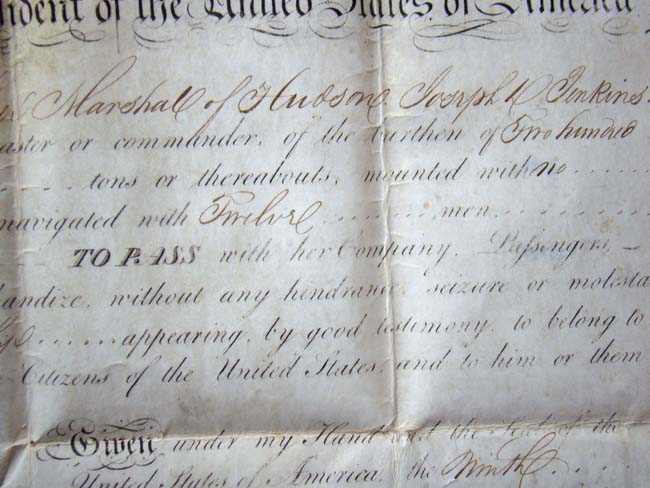 ident of the United States of America
Marshall of Hudson. Joseph D Jenkins.
aster or commander, of the burthen of Two hundred
tons or thereabouts, mounted with no
navigated with Twelve ....... men
TO PASS with her Company, Passengers,
handize, without any hendrance, seizure or molesta
appearing, by good testimony, to belong to
Citizens of the United States; and to him or them
Given under my Hand and the Seal of the
United States of America, the Ninth